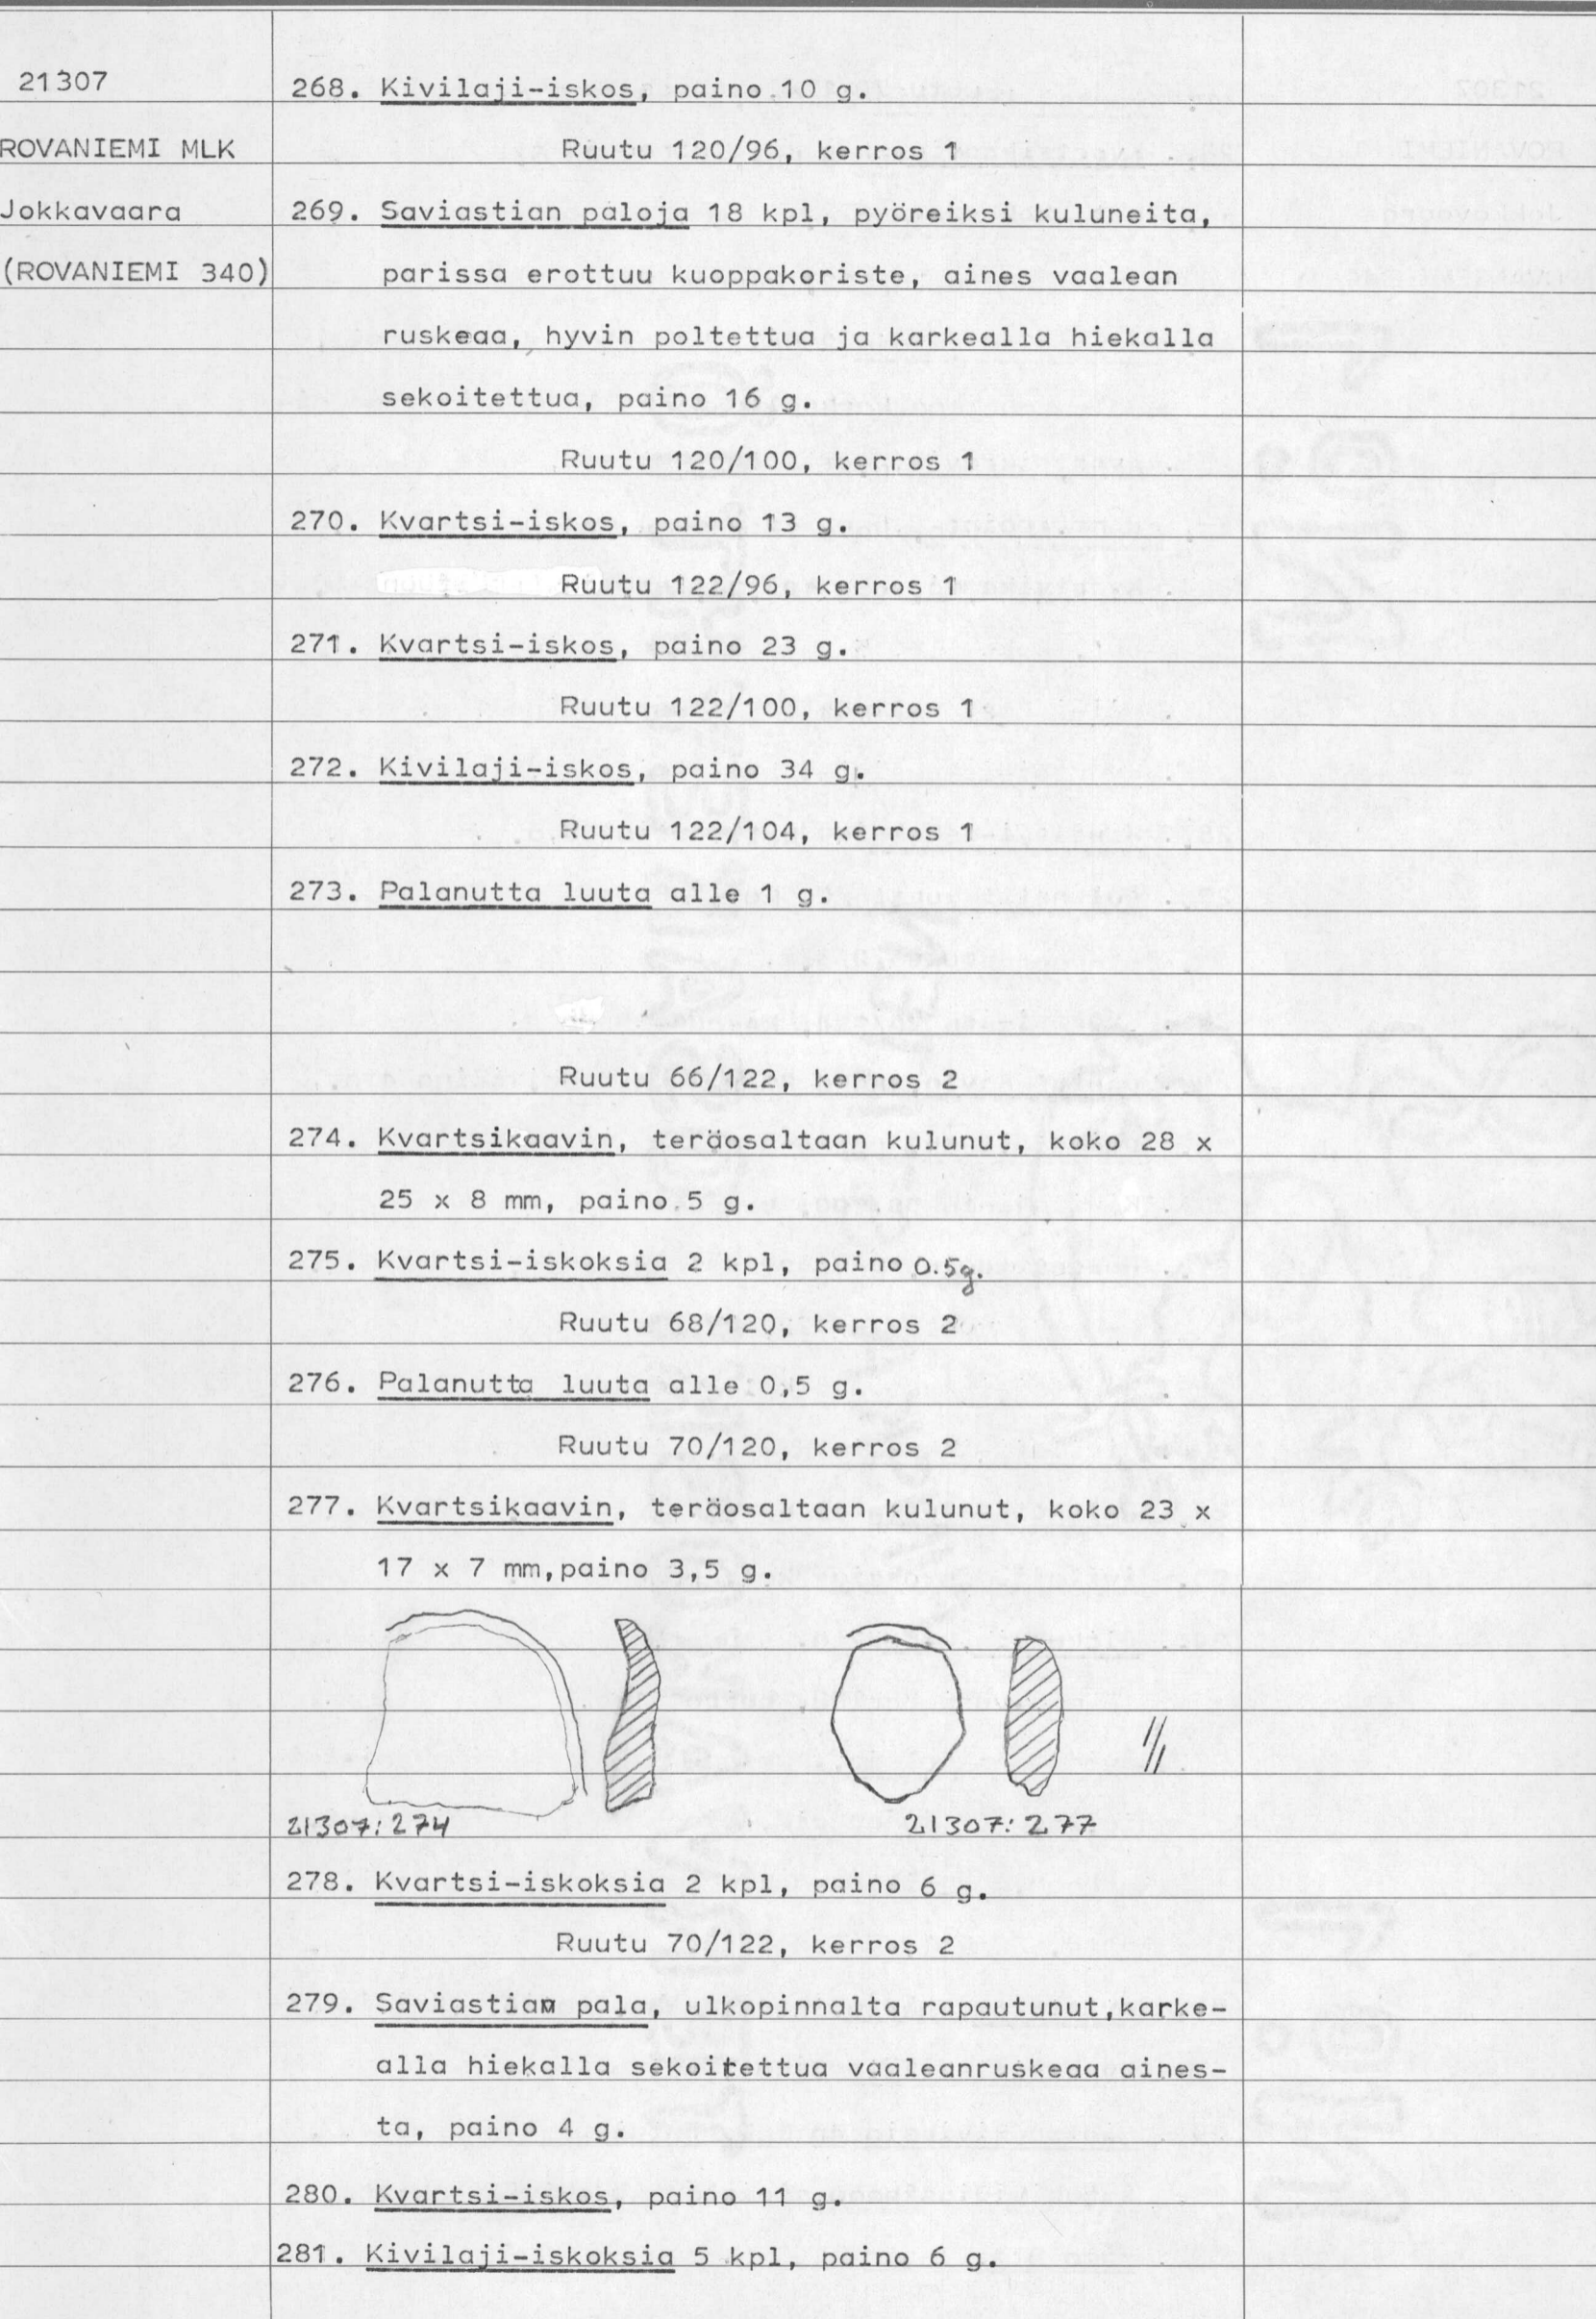 21307
ROVANIEMI MLK
Jokkavaara
(ROVANIEMI 340)
268. Kivilaji-iskos, paino 10 g.
Ruutu 120/96, kerros 1
269. Saviastian paloja 18 kpl, pyöreiksi kuluneita,
parissa erottuu kuoppakoriste, aines vaalean
ruskeaa, hyvin poltettua ja karkealla hiekalla
sekoitettua, paino 16 g.
Ruutu 120/100, kerros 1
270. Kvartsi-iskos, paino 13 g.
Ruutu 122/96, kerros 1
271. Kvartsi-iskos, paino 23 g.
Ruutu 122/100, kerros 1
272. Kivilaji-iskos, paino 34 g.
Ruutu 122/104, kerros 1
273. Palanutta luuta alle 1 g.
Ruutu 66/122, kerros 2
274. Kvartsikaavin, teräosaltaan kulunut, koko 28 x
25 x 8 mm, paino 5 g.
275. Kvartsi-iskoksia 2 kpl, paino 0.5g.
Ruutu 68/120, kerros 2
276. Palanutta luuta alle 0,5 g.
Ruutu 70/120, kerros 2
277. Kvartsikaavin, teräosaltaan kulunut, koko 23 x
17 x 7 mm,paino 3,5 g.
21307:274
21307:277
278. Kvartsi-iskoksia 2 kpl, paino 6 g.
Ruutu 70/122, kerros 2
279. Saviastian pala, ulkopinnalta rapautunut,karke-
alla hiekalla sekoitettua vaaleanruskeaa aines-
ta, paino 4 g.
280. Kvartsi-iskos, paino 11 g.
281. Kivilaji-iskoksia 5 kpl, paino 6 g.